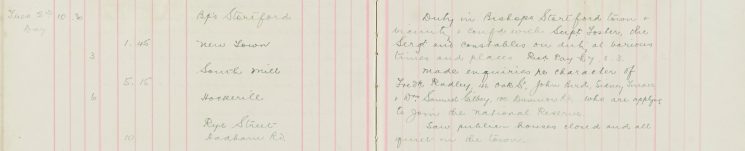 Tues 2nd 10 30 Bp's Stortford
Day
1.45 New Town
3
South Mill
5.15
6 Hockerill
Rye Street
10 Hadham Rd.
Duty in Bishops Stortford town &
vicinity & confce with Supt Foster, the
Sergt and constables on duty at various
times and places. Recd Pay by S.S.
Made enquiries re character of
Fredk Radley, in Oak St, John Bird, Sidney
& Samuel Gilbey, on Dunmow Rd. who are applying
to join the National Reserve.
Saw publican houses closed and all
quiet in the town.